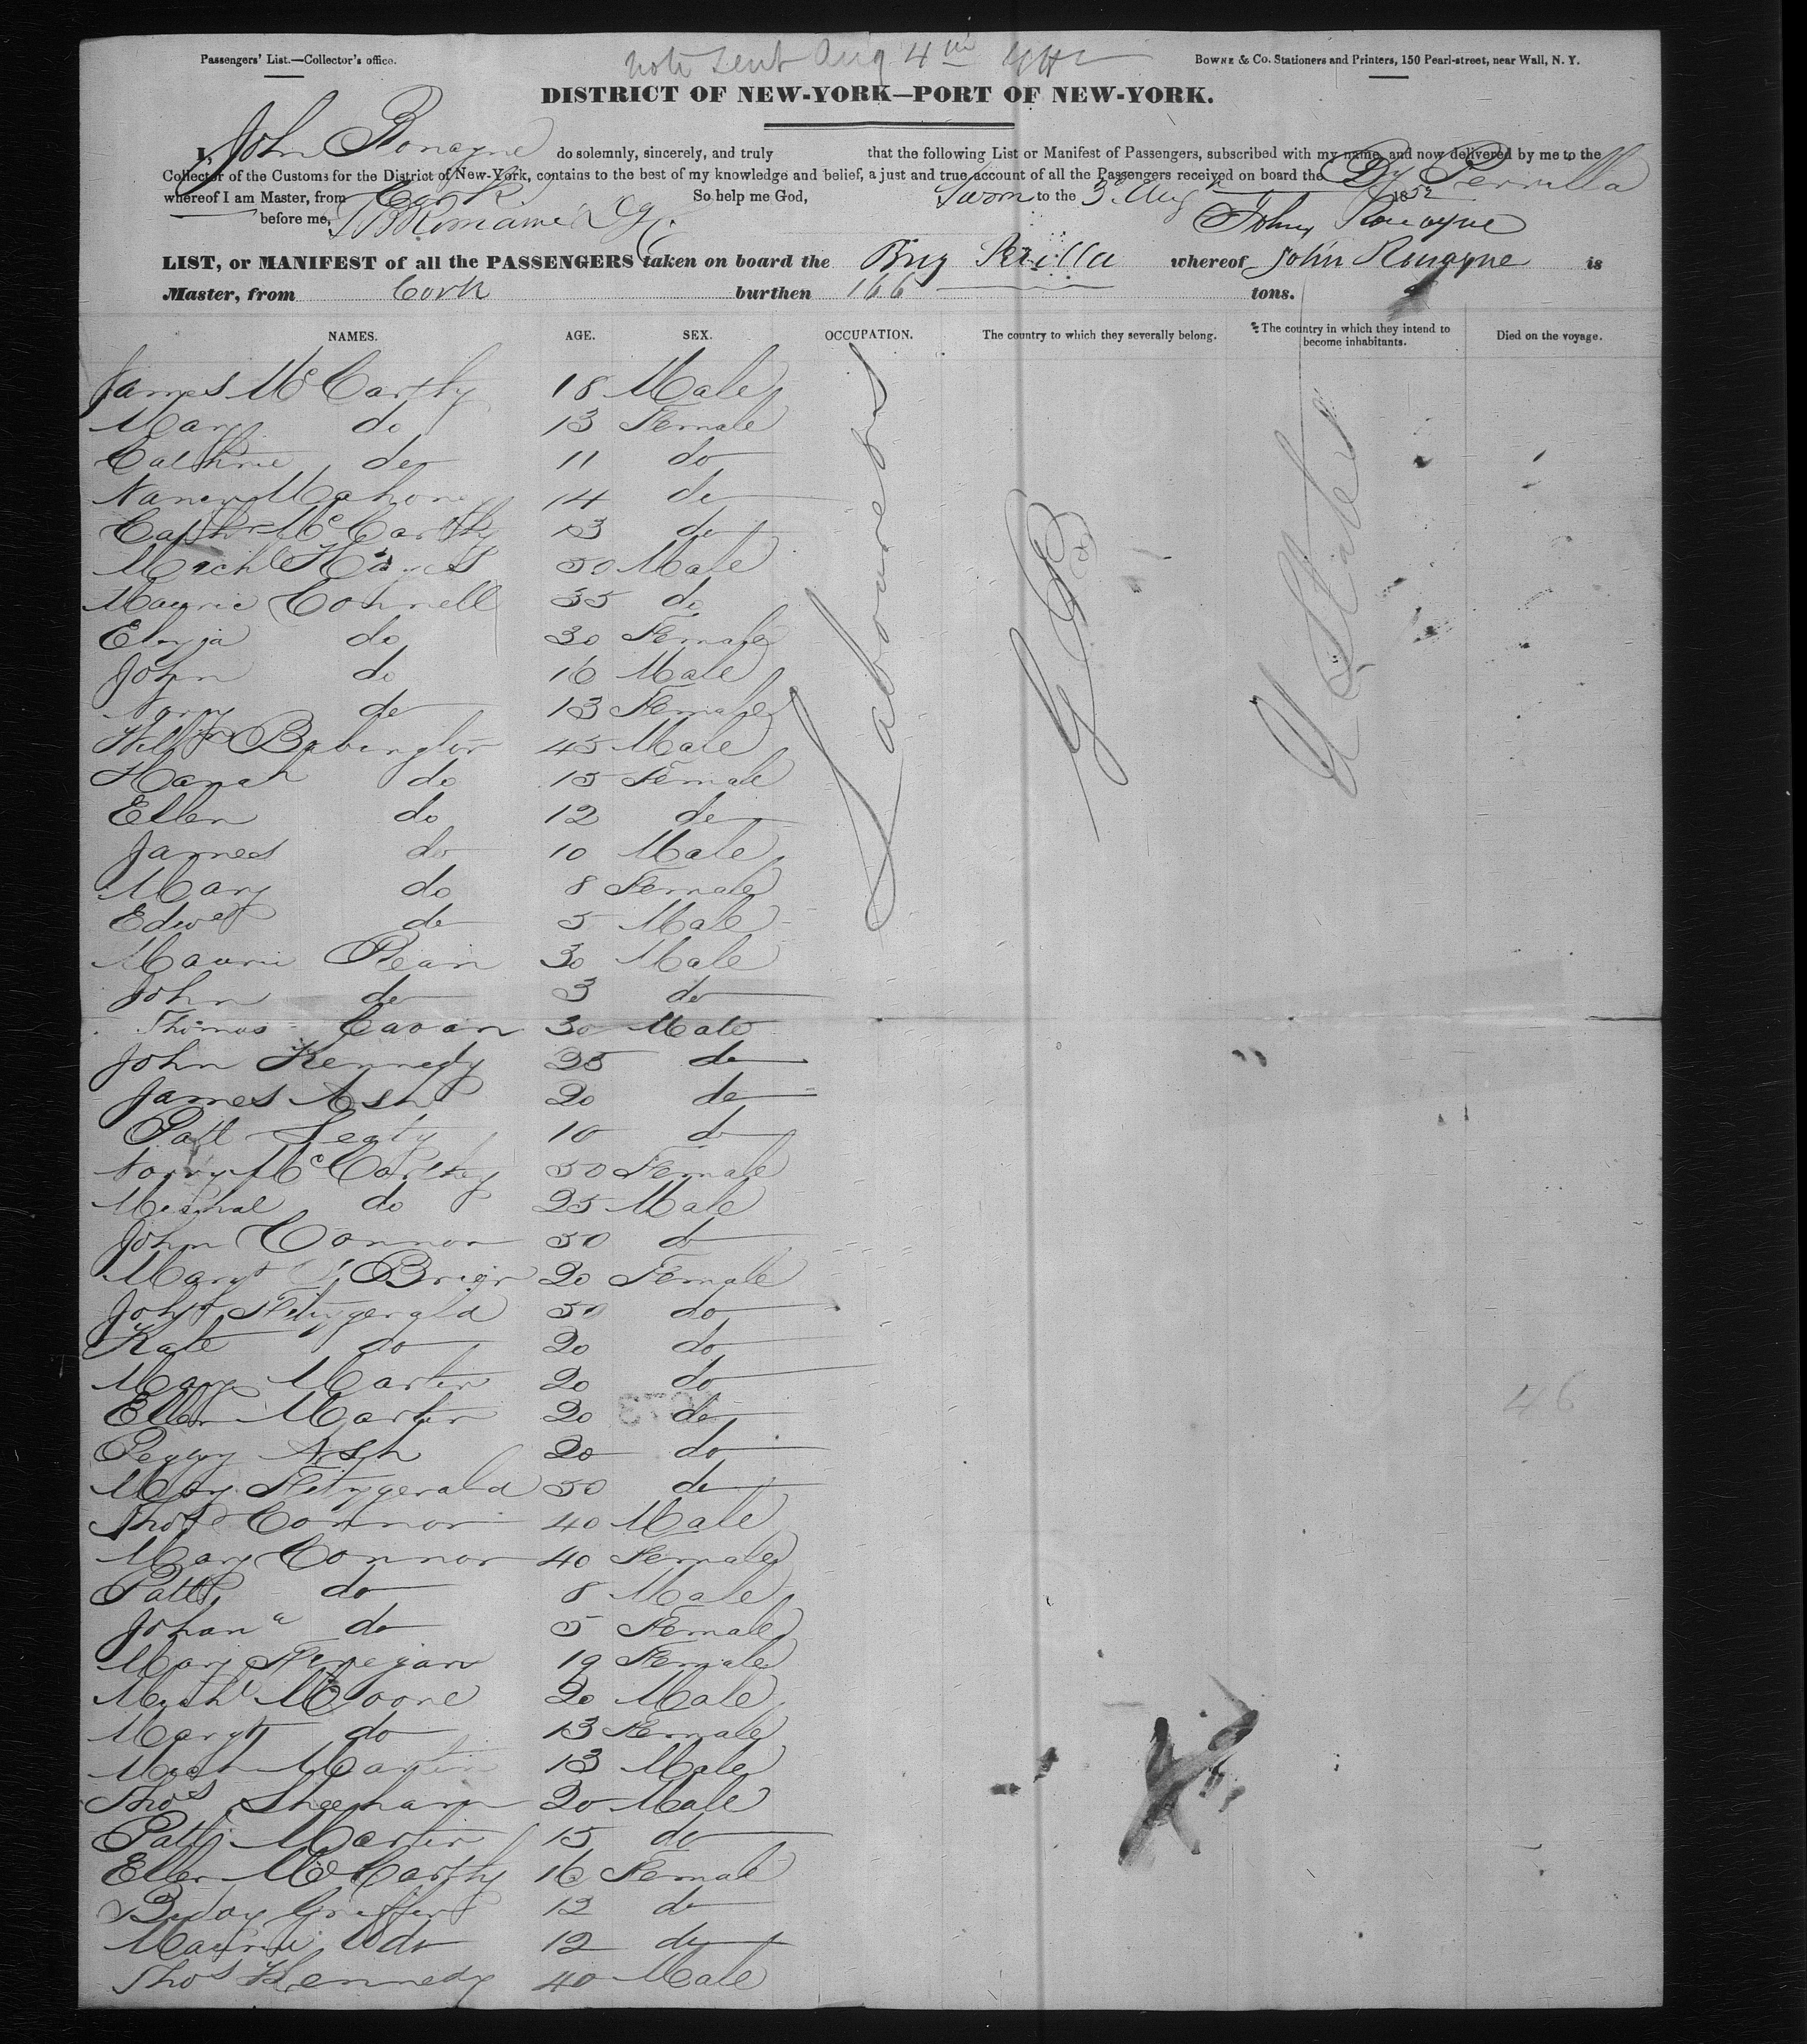 note sent Aug 4th
Passengers' List.—Collector's office.
BOWNE & Co. Stationers and Printers, 150 Pearl-street, near Wall, N. Y.
DISTRICT OF NEW-YORK—PORT OF NEW-YORK.
I, John Ronayne do solemnly, sincerely, and truly that the following List or Manifest of Passengers, subscribed with my name, and now delivered by me to the
Collector of the Customs for the District of New-York, contains to the best of my knowledge and belief, a just and true account of all the Passengers received on board the
whereof I am Master, from Cork So help me God,
Sworn to the 3d Aug 1852
before me, John Ronayne
LIST, or MANIFEST of all the PASSENGERS taken on board the Brig whereof John Ronayne is
Master, from Cork burthen 166 tons.
NAMES. AGE. SEX. OCCUPATION. The country to which they severally belong. The country in which they intend to become inhabitants. Died on the voyage.
James McCarthy 18 Male
Mary do 13 Female
Cathrine do 11 do
Nancy Mahoney 14 do
Cathr McCarthy 13 do
Mich Hayes 50 Male
Maurice Connell 35 do
do 30 Female
John do 16 Male
Nory do 13 Female
Willm Babington 45 Male
Hanah do 15 Female
Ellen do 12 do
James do 10 Male
Mary do 8 Female
Edwd do 5 Male
30 Male
John do 3 do
Thomas Cavan 30 Male
John Kennedy 25 do
James Ash 20 do
Patt 10 do
Norry McCarthy 50 Female
Michal do 25 Male
John Connor 50 do
Margt O Brien 20 Female
Fitzygerald 50 do
Kate do 20 do
Mary Martin 20 do
Ellen Martin 20 do
Peggy Ash 20 do
Mary Fitzygerald 50 do
Thos Connor 40 Male
Mary Connor 40 Female
Patt do 8 Male
Johana do 5 Female
Mary Finegan 19 Female
Michl Moore 20 Male
Margt do 13 Female
Mich Martin 13 Male
Thos Sheehan 20 Male
Patt Martin 15 do
Ellen McCarthy 16 Female
Biddy Griffin 12 do
do 12 do
Thos Kennedy 40 Male
Labourers
G B
U States
46